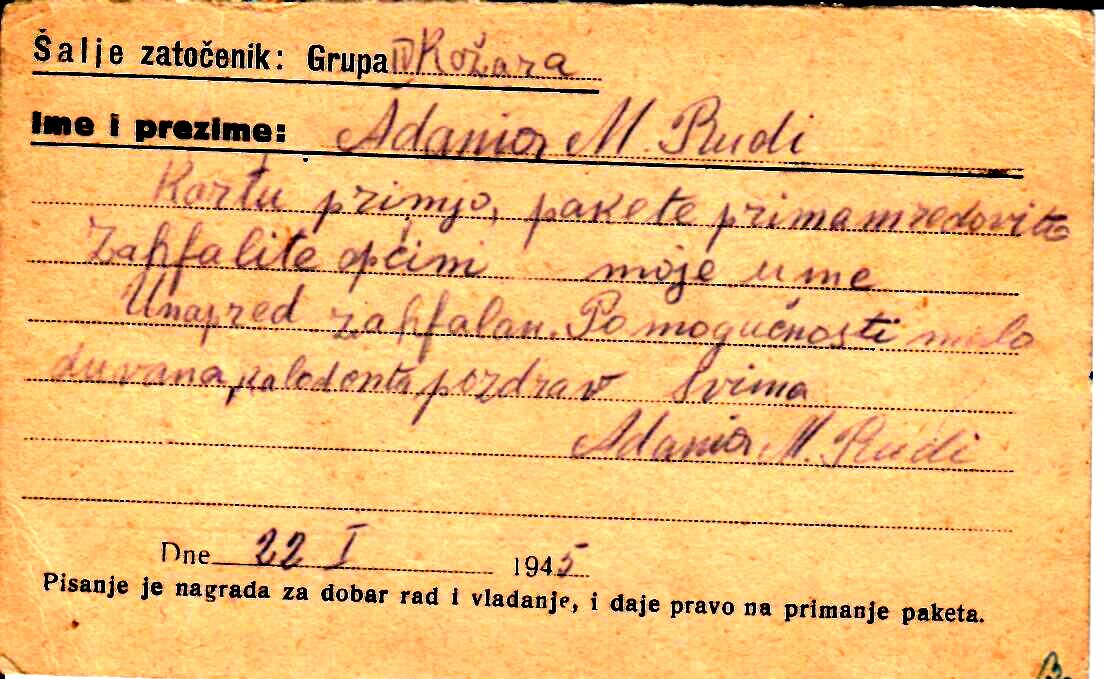 Šalje zatočenik: Grupa IV Kožara
Ime i prezime: Adanja M. Rudi
Kartu primjo, pakete primam redovito
Zahfalite općini moje u me
Unapred zahfalan. Po mogućnosti malo
duvana, kaledonta pozdrav Svima
Adanja M. Rudi
Dne 22 I 1945
Pisanje je nagrada za dobar rad i vladanje, i daje pravo na primanje paketa.